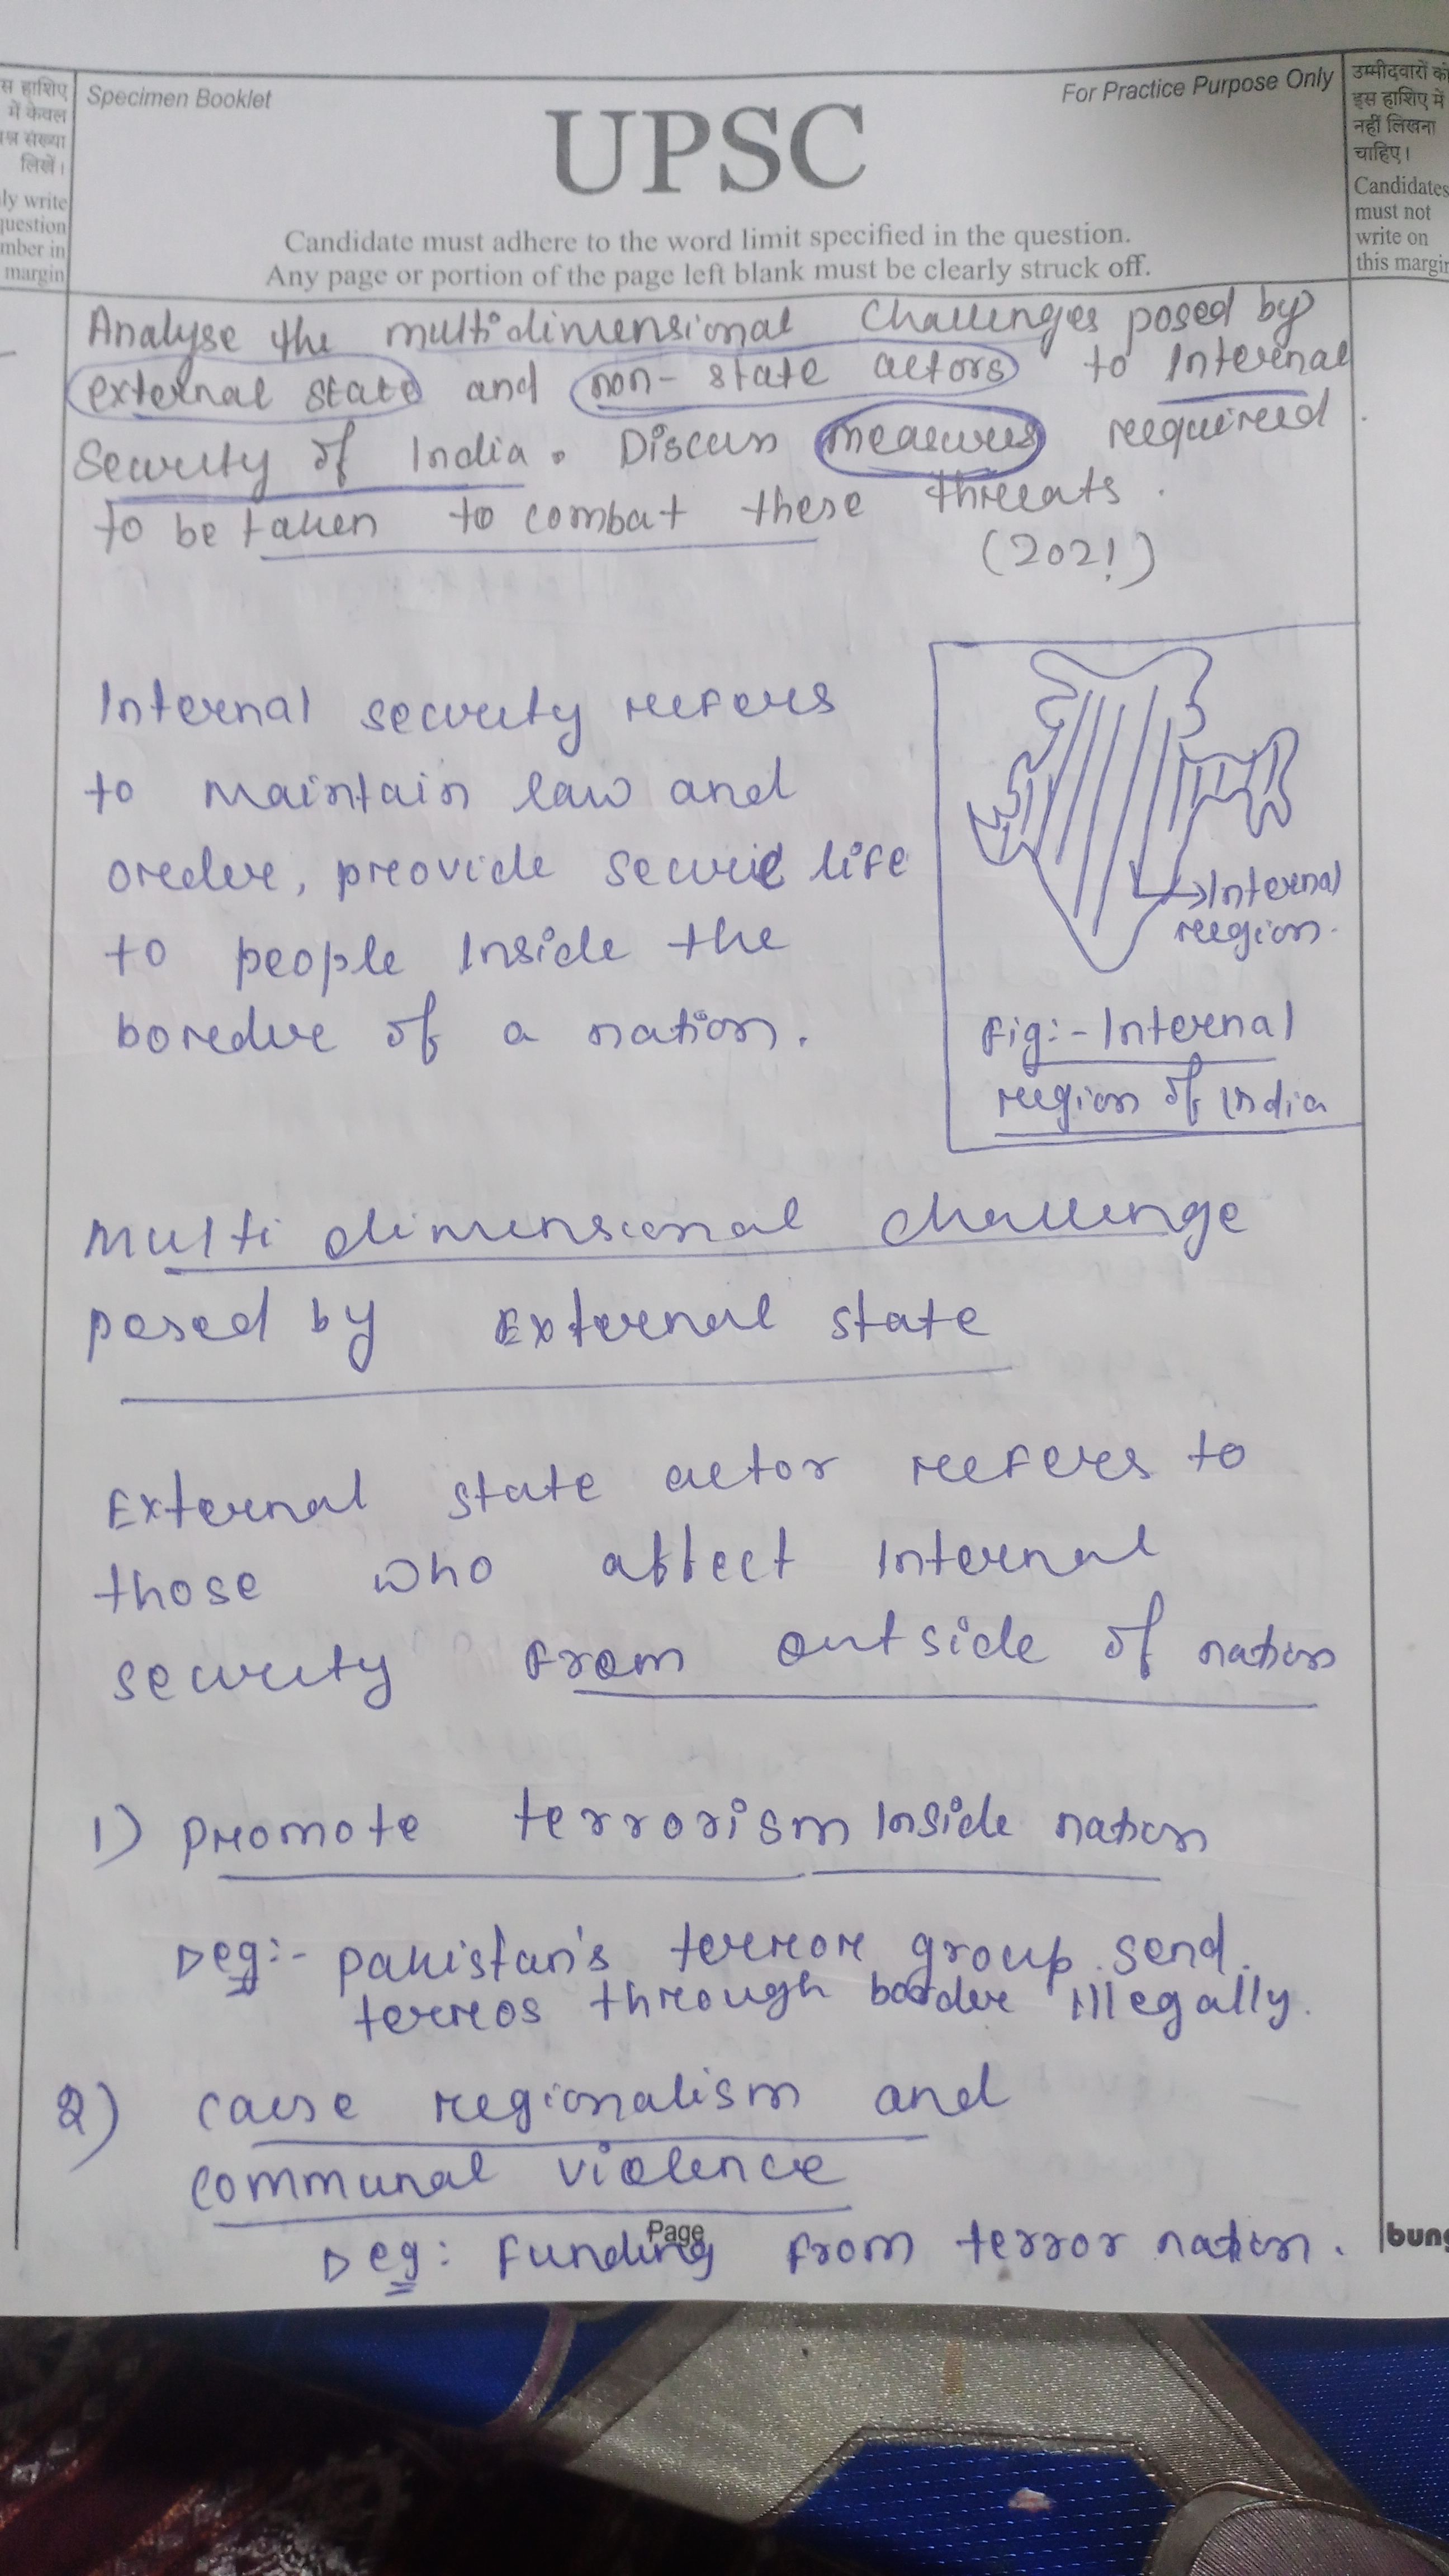 स हाशिए
में केवल
श्न संख्या
लिखें।
ly write
question
mber in
margin
Specimen Booklet
For Practice Purpose Only
UPSC
Candidate must adhere to the word limit specified in the question.
Any page or portion of the page left blank must be clearly struck off.
उम्मीदवारों को
इस हाशिए में
नहीं लिखना
चाहिए।
Candidates
must not
write on
this margin
Analyse the multidimensional challenges posed by
external state and non-state actors to Internal
Security of India. Discuss measures required
to be taken to combat these threats.
(2021)
Internal security refers
to maintain law and
order, provide secure life
to people Inside the
border of a nation.
→Internal
region.
Fig:- Internal
region of India
Multi dimensional challenge
posed by External state
External state actor refers to
those who affect Internal
security from outside of nation
1) Promote terrorism Inside nation
eg:- Pakistan's terror group send
terros through border illegally.
2) cause regionalism and
communal violence
eg: Funding from terror nation.
Page
bung